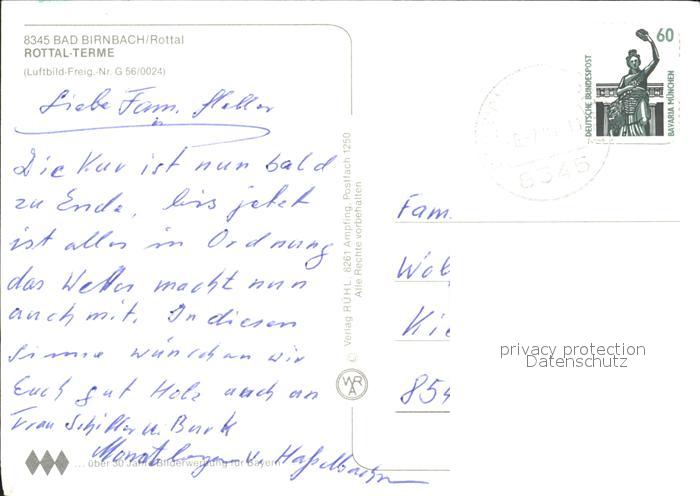 8345 BAD BIRNBACH/Rottal
ROTTAL-TERME
(Luftbild-Freig.-Nr. G 56/0024)
Liebe Fam.
Die Kur ist nun bald
zu Ende, bis jetzt
ist alles in Ordnung
das Wetter macht nun
auch mit. In diesen
Sinne wünschen wir
Euch gut Holz auch an
Frau Schiller u. Burk
... über 30 Jahre Bilderwerbung für Bayern
© Verlag RÜHL, 8261 Ampfing, Postfach 1250
Alle Rechte vorbehalten
WRA
60
DEUTSCHE BUNDESPOST
BAVARIA MÜNCHEN
8345
Fam.
Wol
Kie
854
privacy protection
Datenschutz